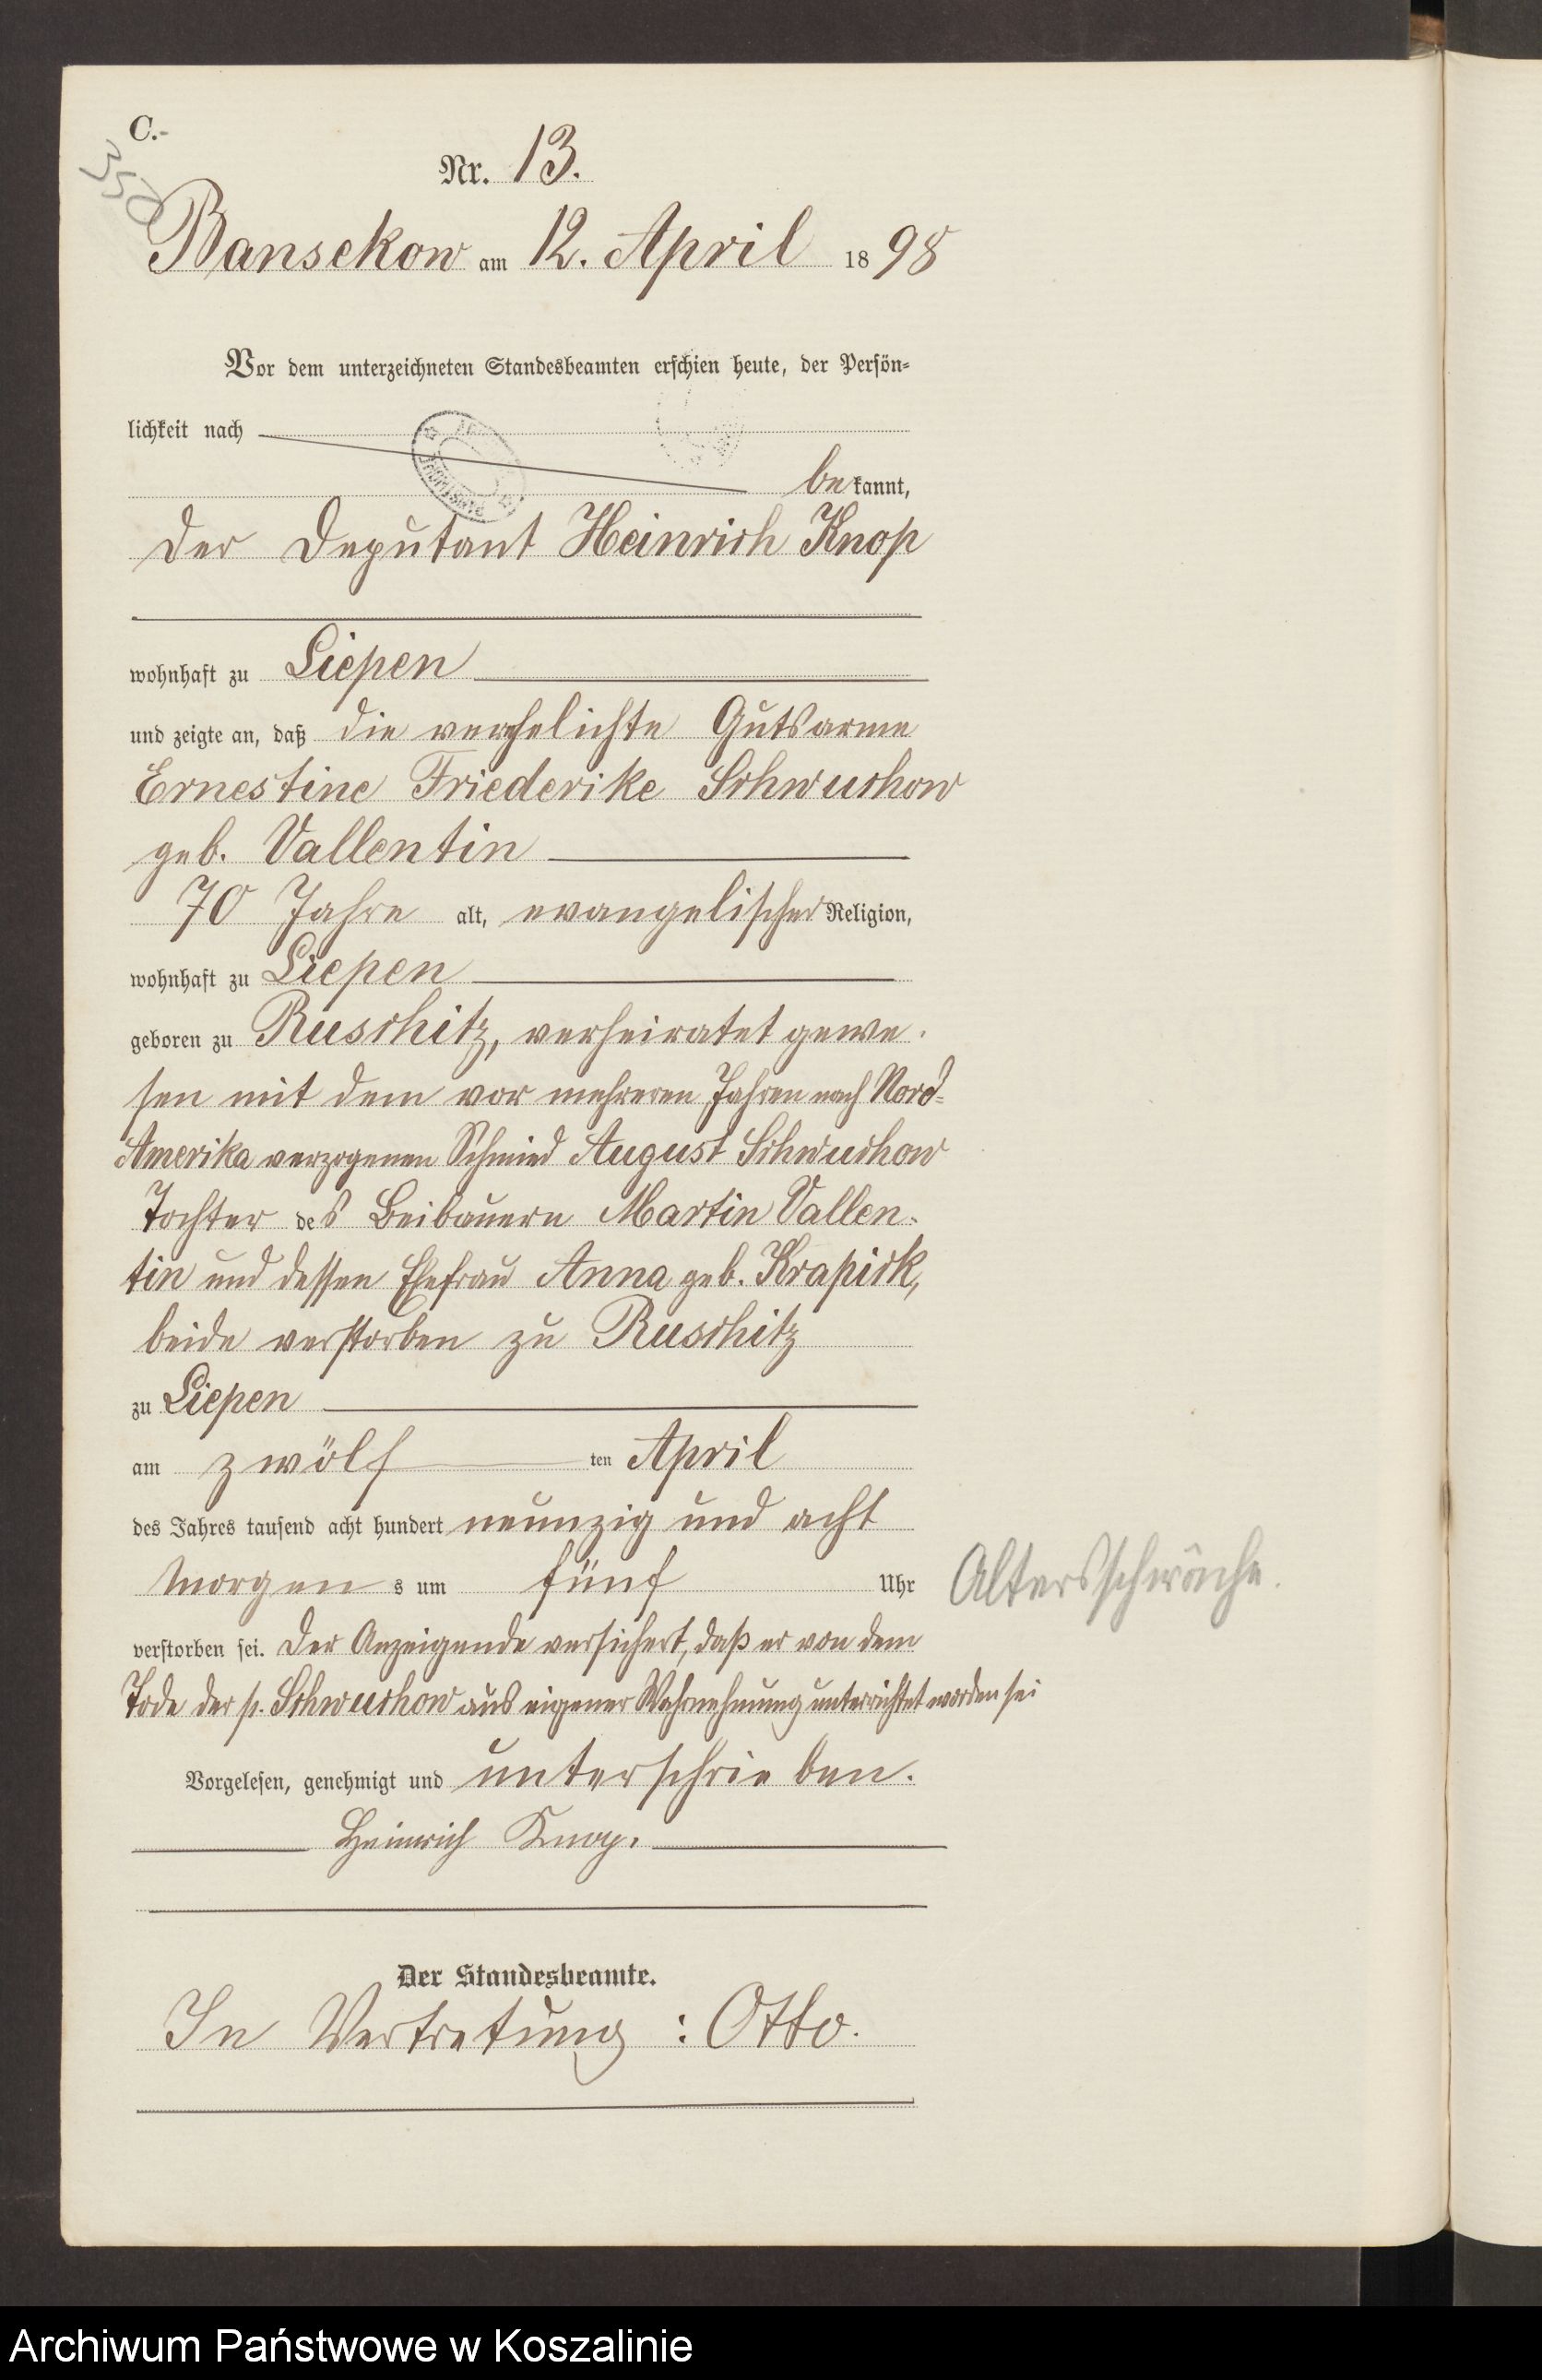 C.-
350
Nr. 13.
Bansekow am 12. April 1898
Vor dem unterzeichneten Standesbeamten erschien heute, der Persön-
lichkeit nach
bekannt,
der Deputant Heinrich Knop
wohnhaft zu Liepen
und zeigte an, daß die verehelichte Gutsarme
Ernestine Friederike Schwuchow
geb. Vallentin
70 Jahre alt, evangelischer Religion,
wohnhaft zu Liepen
geboren zu Ruschitz, verheiratet gewe-
sen mit dem vor mehreren Jahren nach Nord-
Amerika verzogenen Schmied August Schwuchow
Tochter des Beibauern Martin Vallen-
tin und dessen Ehefrau Anna geb. Krapick,
beide verstorben zu Ruschitz
zu Liepen
am zwölf ten April
des Jahres tausend acht hundert neunzig und acht
Morgens um fünf Uhr
Altersschwäche.
verstorben sei. Der Anzeigende versichert, daß er von dem
Tode der p. Schwuchow aus eigener Wahrnehmung unterrichtet worden sei
Vorgelesen, genehmigt und unterschrieben.
Heinrich Knop.
Der Standesbeamte.
In Vertretung : Otto.
Archiwum Państwowe w Koszalinie